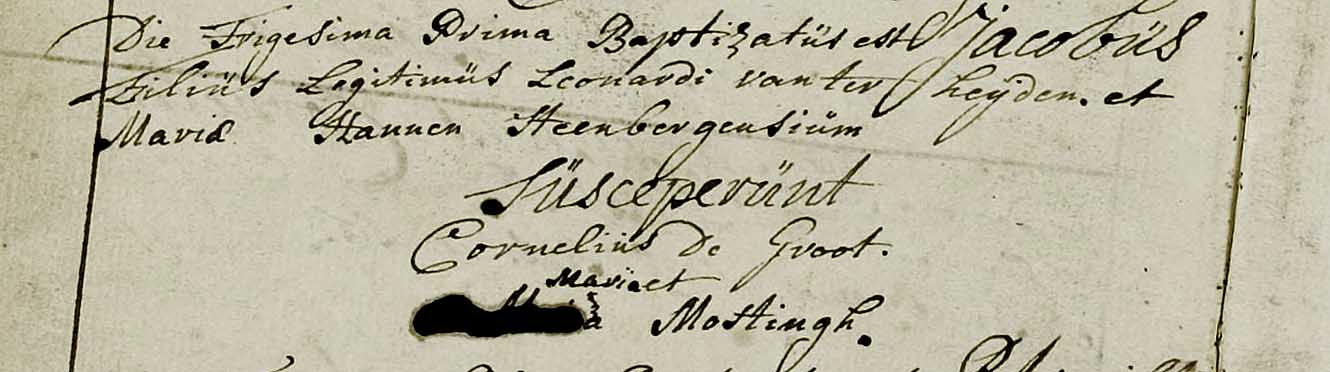 Die Trigesima Prima Baptizatüs est Jacobüs
Filiüs Legitimüs Leonardi van ter heÿden. et
Mariæ Hannen Steenbergensiüm
Süsceperünt
Corneliüs De Groot.
Maria et
Mostingh.